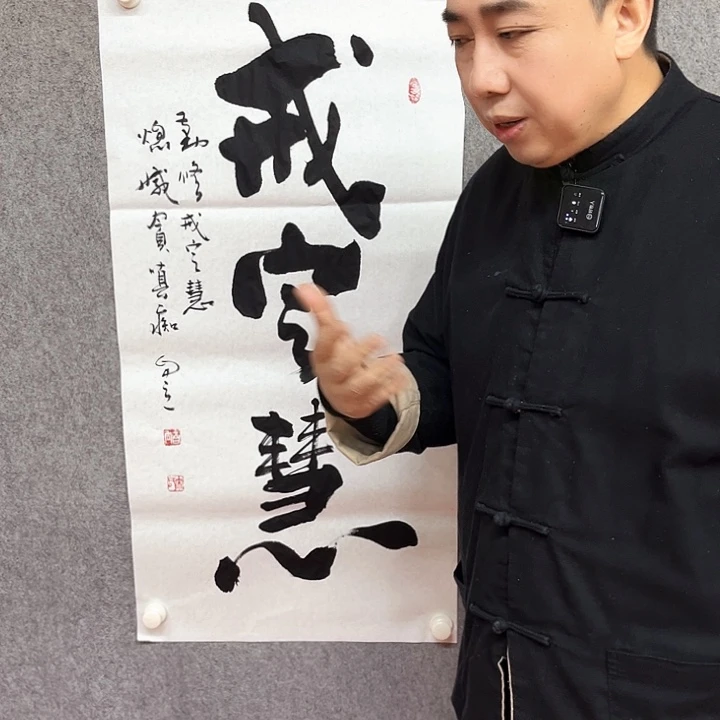 戒定慧
勤修戒定慧
熄灭贪嗔痴